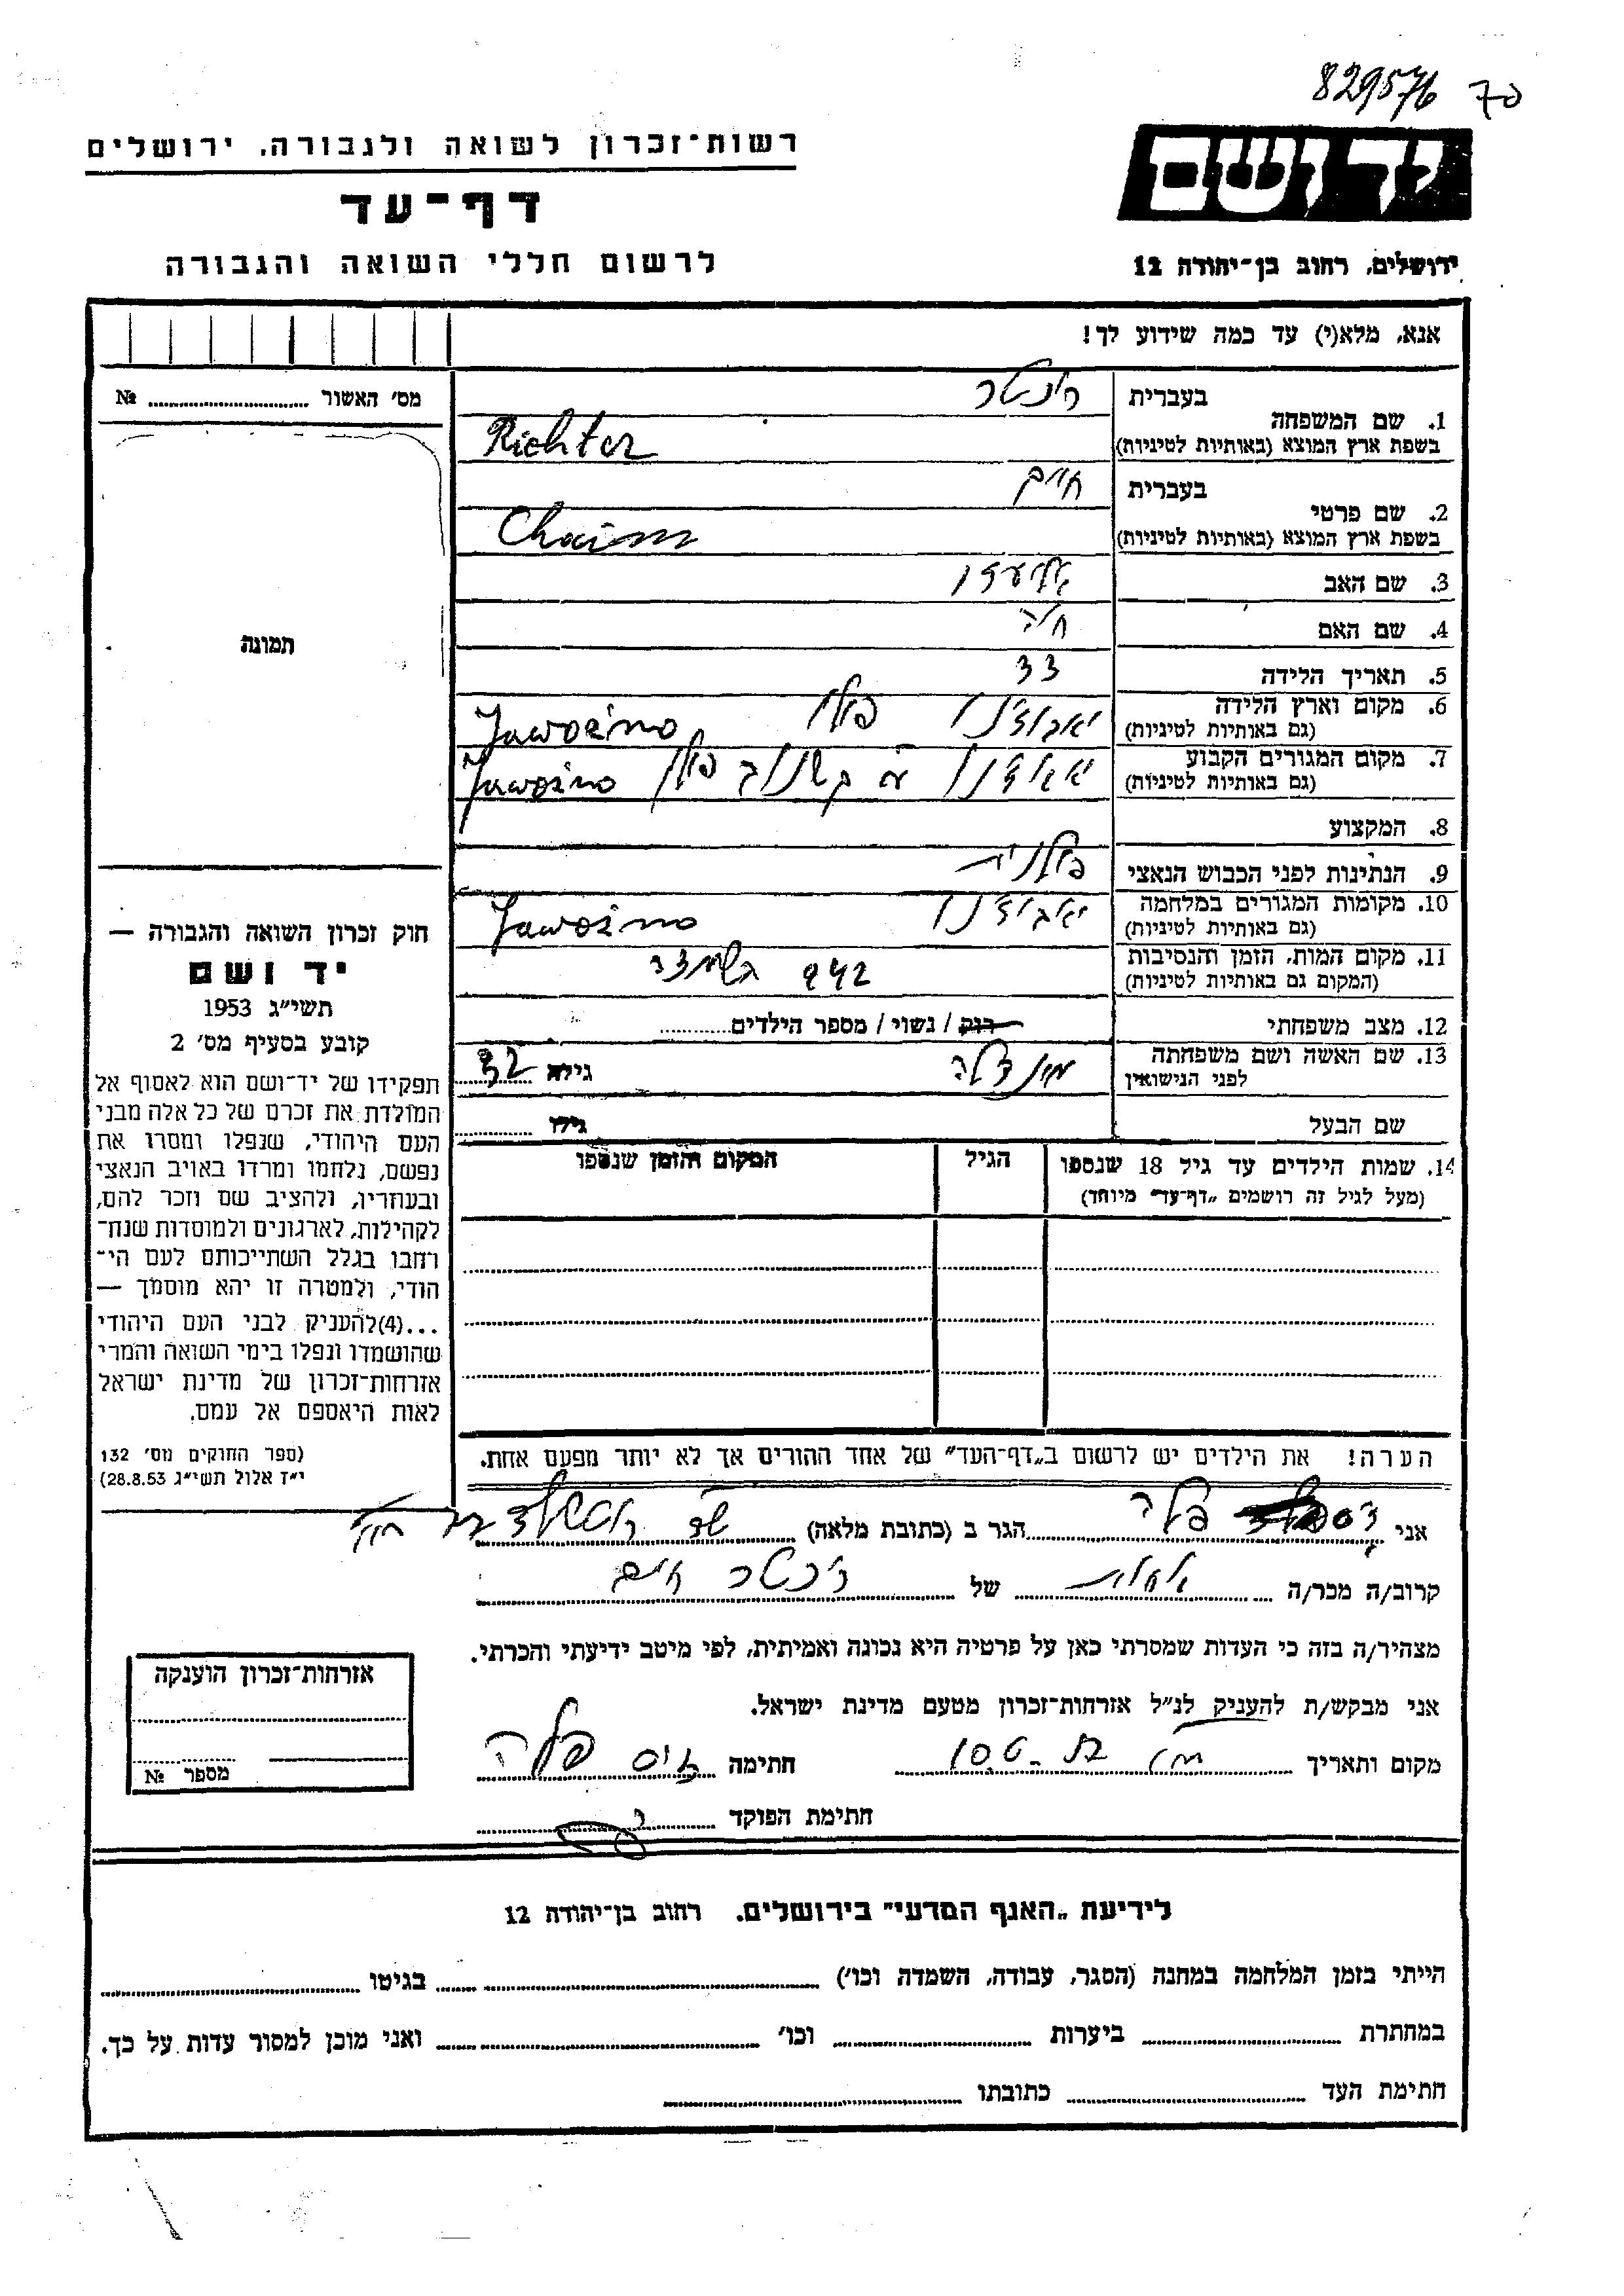 829576 70
רשות־זכרון לשואה ולגבורה, ירושלים
יד ושם
דף־עד
לרשום חללי השואה והגבורה
ירושלים, רחוב בן־יהודה 12
אנא, מלא(י) עד כמה שידוע לך!
מס׳ האשור № 
1. שם המשפחה בעברית
בשפת ארץ המוצא (באותיות לטיניות) Richter
2. שם פרטי בעברית חיים
בשפת ארץ המוצא (באותיות לטיניות) Chaim
3. שם האב
4. שם האם חיה
5. תאריך הלידה 33
6. מקום וארץ הלידה פולין
(גם באותיות לטיניות) Jaworzno
7. מקום המגורים הקבוע פולין
(גם באותיות לטיניות) Jaworzno
8. המקצוע
9. הנתינות לפני הכבוש הנאצי פולנית
10. מקומות המגורים במלחמה
(גם באותיות לטיניות) Jaworzno
11. מקום המות, הזמן והנסיבות 942
(המקום גם באותיות לטיניות)
12. מצב משפחתי רוק / נשוי / מספר הילדים
13. שם האשה ושם משפחתה לפני הנישואין גילה 32
שם הבעל גילו
14. שמות הילדים עד גיל 18 שנספו הגיל המקום והזמן שנספו
(מעל לגיל זה רושמים „דף־עד״ מיוחד)
הערה! את הילדים יש לרשום ב„דף־העד״ של אחד ההורים אך לא יותר מפעם אחת.
תמונה
חוק זכרון השואה והגבורה —
יד ושם
תשי״ג 1953
קובע בסעיף מס׳ 2
תפקידו של יד־ושם הוא לאסוף אל
המולדת את זכרם של כל אלה מבני
העם היהודי, שנפלו ומסרו את
נפשם, נלחמו ומרדו באויב הנאצי
ובעוזריו, ולהציב שם וזכר להם,
לקהילות, לארגונים ולמוסדות שנח־
רבו בגלל השתייכותם לעם הי־
הודי, ולמטרה זו יהא מוסמך —
...(4)להעניק לבני העם היהודי
שהושמדו ונפלו בימי השואה והמרי
אזרחות־זכרון של מדינת ישראל
לאות היאספם אל עמם.
(ספר החוקים מס׳ 132
י״ד אלול תשי״ג 28.8.53)
אני פלה הגר ב (כתובת מלאה)
קרוב/ה מכר/ה אחות של ריכטר חיים
מצהיר/ה בזה כי העדות שמסרתי כאן על פרטיה היא נכונה ואמיתית, לפי מיטב ידיעתי והכרתי.
אני מבקש/ת להעניק לנ״ל אזרחות־זכרון מטעם מדינת ישראל.
מקום ותאריך חתימה פלה
חתימת הפוקד
אזרחות־זכרון הוענקה
מספר №
לידיעת „האגף המדעי״ בירושלים, רחוב בן־יהודה 12
הייתי בזמן המלחמה במחנה (הסגר, עבודה, השמדה וכו׳) בגיטו
במחתרת ביערות וכו׳ ואני מוכן למסור עדות על כך.
חתימת העד כתובתו